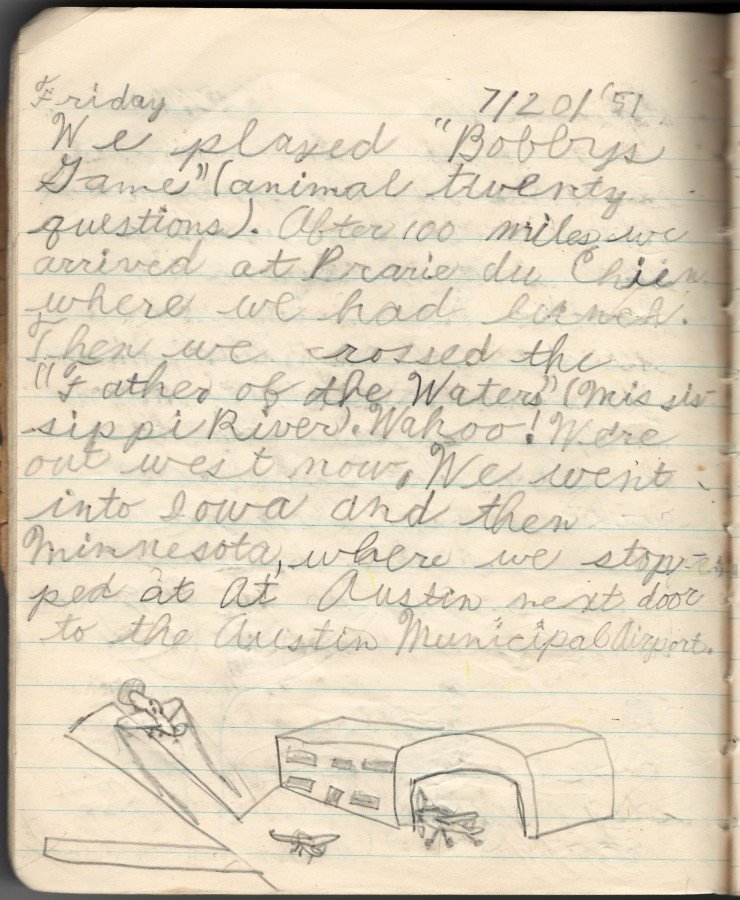 Friday 7/20/'51
We played "Bobbys
Game" (animal twenty
questions). After 100 miles we
arrived at Prarie du Chien
where we had lunch.
Then we crossed the
"Father of the Waters" (Missis-
sippi River). Wahoo! We're
out west now. We went
into Iowa and then
Minnesota, where we stop-
ped at At Austin next door
to the Austin Municipal Airport.